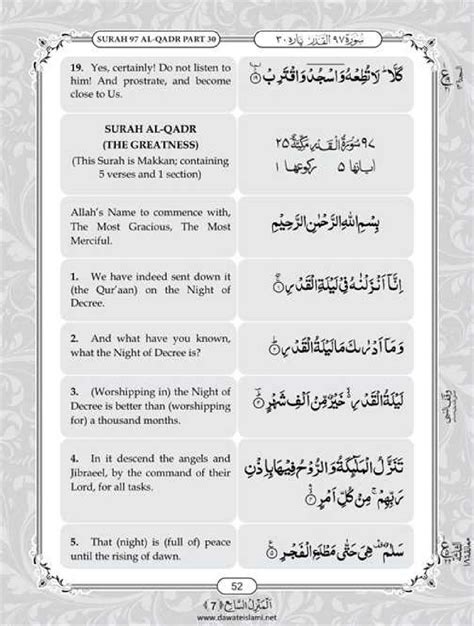 SURAH 97 AL-QADR PART 30
سُوْرَةُ ٩٧ اَلْقَدْر پارہ ٣٠
19. Yes, certainly! Do not listen to
him! And prostrate, and become
close to Us.
كَلَّا ؕ لَا تُطِعْهُ وَاسْجُدْ وَاقْتَرِبْ ۩
SURAH AL-QADR
(THE GREATNESS)
(This Surah is Makkan; containing
5 verses and 1 section)
٩٧ سُوْرَةُ الْقَدْرِ مَكِّيَّةٌ ٢٥
اٰیاتها ٥ رکوعها ١
Allah's Name to commence with,
The Most Gracious, The Most
Merciful.
بِسْمِ اللّٰهِ الرَّحْمٰنِ الرَّحِيْمِ
1. We have indeed sent down it
(the Qur'aan) on the Night of
Decree.
اِنَّاۤ اَنْزَلْنٰهُ فِيْ لَيْلَةِ الْقَدْرِ ۝١
2. And what have you known,
what the Night of Decree is?
وَمَاۤ اَدْرٰىكَ مَا لَيْلَةُ الْقَدْرِ ۝٢
3. (Worshipping in) the Night of
Decree is better than (worshipping
for) a thousand months.
لَيْلَةُ الْقَدْرِ ۙ خَيْرٌ مِّنْ اَلْفِ شَهْرٍ ۝٣
4. In it descend the angels and
Jibraeel, by the command of their
Lord, for all tasks.
تَنَزَّلُ الْمَلٰٓئِكَةُ وَالرُّوْحُ فِيْهَا بِاِذْنِ
رَبِّهِمْ ۚ مِنْ كُلِّ اَمْرٍ ۝٤
5. That (night) is (full of) peace
until the rising of dawn.
سَلٰمٌ ۛ هِيَ حَتّٰى مَطْلَعِ الْفَجْرِ ۝٥
52
اَلْمَنْزِلُ السَّابِع ﴿7﴾
www.dawateislami.net